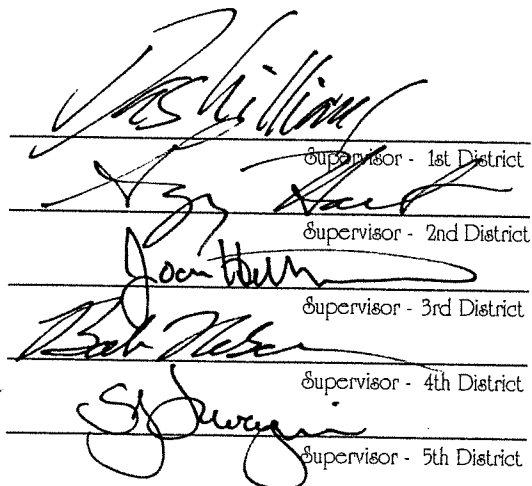 Das Williams
Supervisor - 1st District
Supervisor - 2nd District
Joan
Supervisor - 3rd District
Bob Nelson
Supervisor - 4th District
Supervisor - 5th District